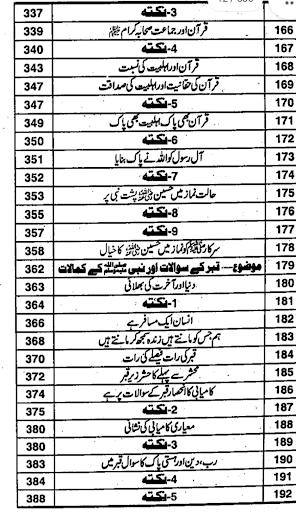 نکتہ-3 337
166 قرآن اور جماعت صحابہ کرام 339
167 نکتہ-4 340
168 قرآن اور اہلبیت کی نسبت 343
169 قرآن کی حقانیت اور اہلبیت کی صداقت 347
170 نکتہ-5 347
171 قرآن بھی پاک اہلبیت بھی پاک 349
172 نکتہ-6 350
173 آل رسول کو اللہ نے پاک بنایا 351
174 نکتہ-7 352
175 حالت نماز میں حسین پشت نبی پر 353
176 نکتہ-8 355
177 نکتہ-9 357
178 سرکار ﷺ کو نماز میں حسین کا خیال 358
179 موضوع---- قبر کے سوالات اور نبی ﷺ کے کمالات 362
180 دنیا اور آخرت کی بھلائی 363
181 نکتہ-1 364
182 انسان ایک مسافر ہے 366
183 ہم جس کو مانتے ہیں زندہ سمجھ کر مانتے ہیں 368
184 قبر کی رات فیصلے کی رات 370
185 محشر سے پہلے کا حشر زیر قبر 372
186 کامیابی کا انحصار قبر کے سوالات پر ہے 374
187 نکتہ-2 375
188 معیاری کامیابی کی نشانی 380
189 نکتہ-3 380
190 رب، دین اور ہستی پاک کا سوال قبر میں 383
191 نکتہ-4 384
192 نکتہ-5 388